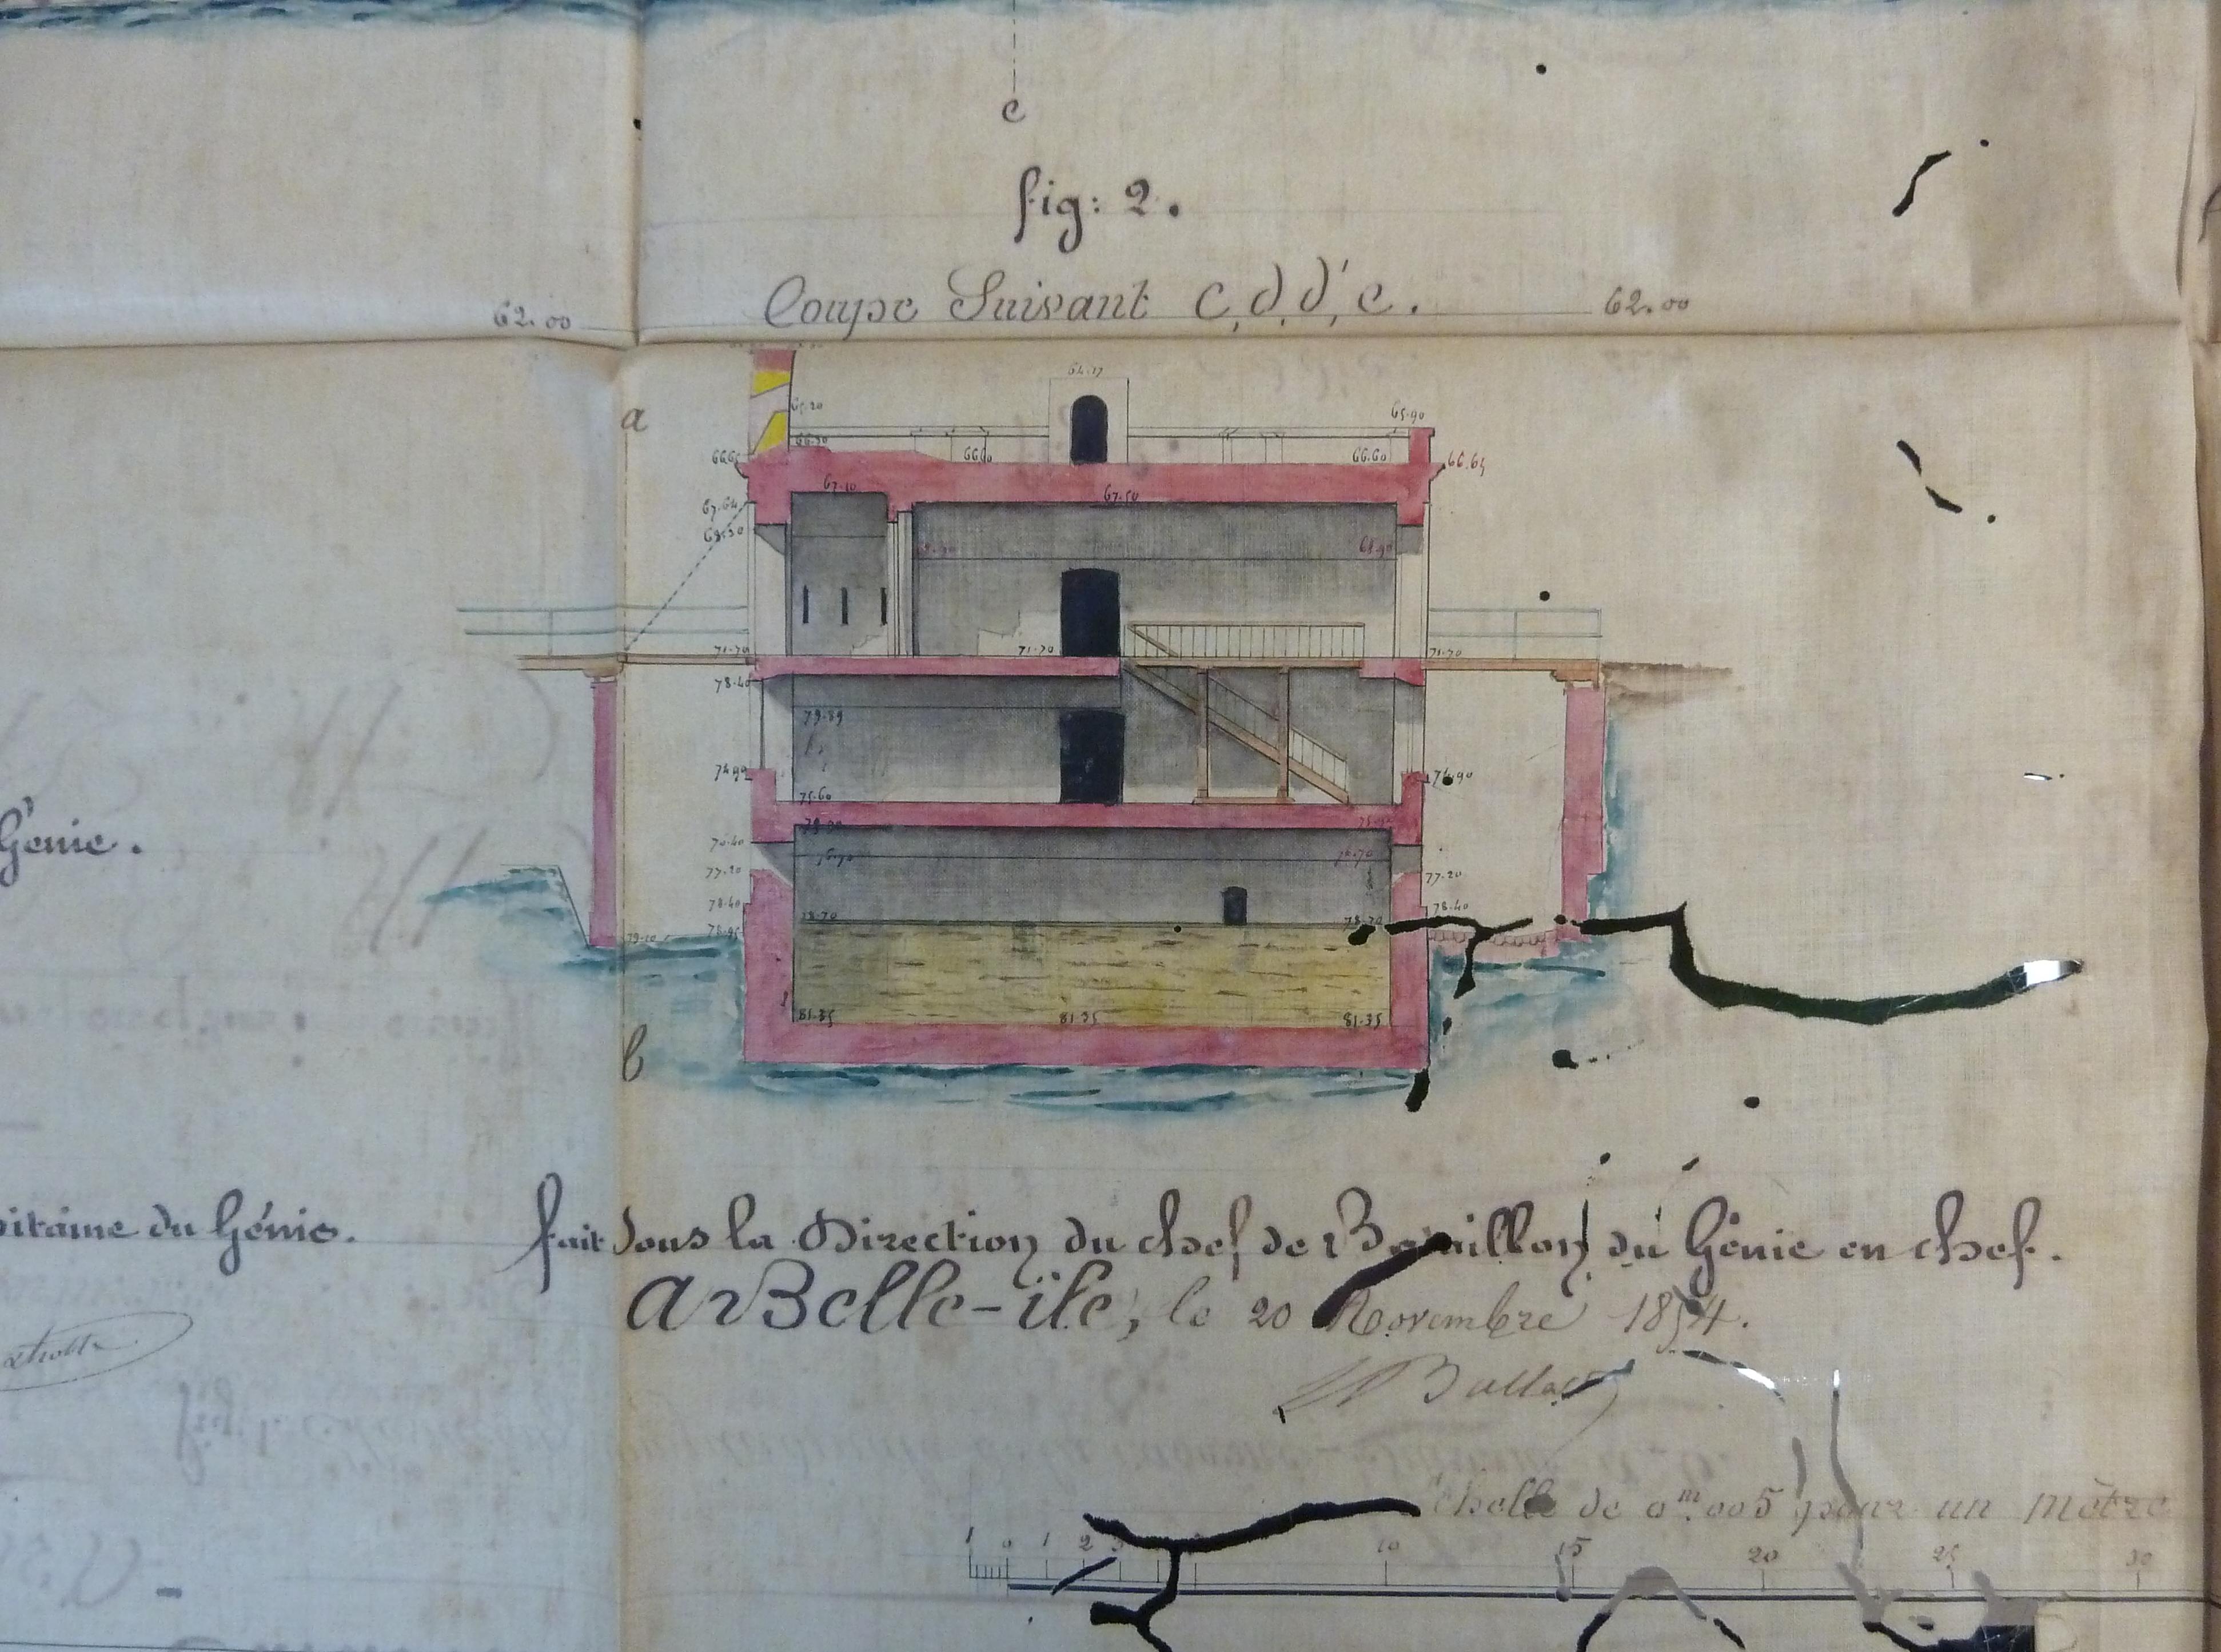 c
fig: 2.
Coupe Suivant c, d, d', c.
62.00
62.00
a
64.17
65.20
65.90
66.60
66.60
66.64
67.10
67.50
67.64
71.70
71.70
71.70
78.40
79.89
74.90
74.90
75.60
76.70
77.20
77.20
78.40
78.40
78.70
78.70
78.95
79.10
81.35
81.35
81.35
b
Génie.
du Génie.
fait sous la Direction du chef de Bataillon du Génie en chef.
A Belle-ile, le 20 Novembre 1854.
Echelle de 0m.005 pour un mètre
1 0 1 2 3 10 15 20 25 30